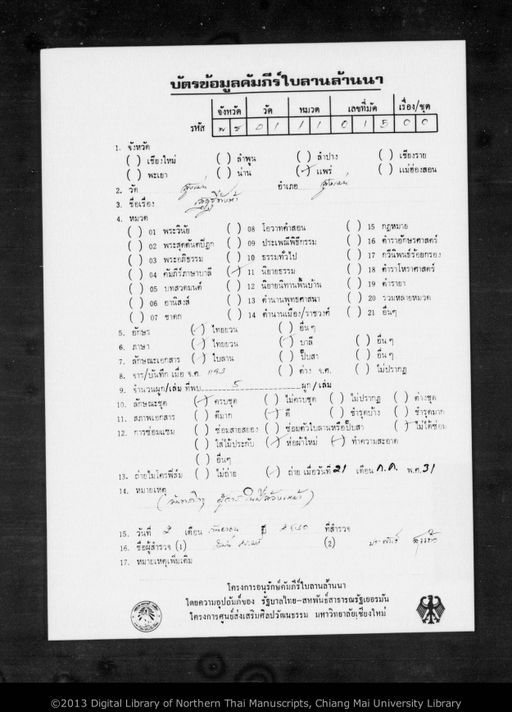 บัตรข้อมูลคัมภีร์ใบลานล้านนา
จังหวัด วัด หมวด เลขที่มัด เรื่อง/ชุด
รหัส พ ร 0 1 1 1 0 1 5 0 0
1. จังหวัด
( ) เชียงใหม่ ( ) ลำพูน ( ) ลำปาง ( ) เชียงราย
( ) พะเยา ( ) น่าน (✓) แพร่ ( ) แม่ฮ่องสอน
2. วัด สูงเม่น อำเภอ สูงเม่น
3. ชื่อเรื่อง
4. หมวด
( ) 01 พระวินัย ( ) 08 โอวาทคำสอน ( ) 15 กฎหมาย
( ) 02 พระสุตตันตปิฎก ( ) 09 ประเพณีพิธีกรรม ( ) 16 ตำราอักษรศาสตร์
( ) 03 พระอภิธรรม ( ) 10 ธรรมทั่วไป ( ) 17 กวีนิพนธ์ร้อยกรอง
( ) 04 คัมภีร์ภาษาบาลี (✓) 11 นิยายธรรม ( ) 18 ตำราโหราศาสตร์
( ) 05 บทสวดมนต์ ( ) 12 นิยายนิทานพื้นบ้าน ( ) 19 ตำรายา
( ) 06 อานิสงส์ ( ) 13 ตำนานพุทธศาสนา ( ) 20 รวมหลายหมวด
( ) 07 ชาดก ( ) 14 ตำนานเมือง/ราชวงศ์ ( ) 21 อื่นๆ
5. อักษร (✓) ไทยยวน ( ) อื่นๆ
6. ภาษา (✓) ไทยยวน (✓) บาลี ( ) อื่น ๆ
7. ลักษณะเอกสาร (✓) ใบลาน ( ) ปั๊บสา ( ) อื่น ๆ
8. จาร/บันทึก เมื่อ จ.ศ. ( ) ค่าง จ.ศ. ( ) ไม่ปรากฏ
9. จำนวนผูก/เล่ม ที่พบ 5 ผูก/เล่ม
10. ลักษณะชุด (✓) ครบชุด ( ) ไม่ครบชุด ( ) ไม่ปรากฏ ( ) ต่างชุด
11. สภาพเอกสาร ( ) ดีมาก (✓) ดี ( ) ชำรุดบ้าง ( ) ชำรุดมาก
12. การซ่อมแซม ( ) ซ่อมสายสยอง ( ) ซ่อมตัวใบลานหรือปั๊บสา (✓) ไม่ได้ซ่อม
( ) ใส่ไม้ประกับ (✓) ห่อผ้าใหม่ (✓) ทำความสะอาด
( ) อื่นๆ
13. ถ่ายไมโครฟิล์ม ( ) ไม่ถ่าย (✓) ถ่าย เมื่อวันที่ 21 เดือน ก.ค. พ.ศ. 31
14. หมายเหตุ
15. วันที่ 2 เดือน กันยายน ปี 2530 ที่สำรวจ
16. ชื่อผู้สำรวจ (1) (2)
17. หมายเหตุเพิ่มเติม
โครงการอนุรักษ์คัมภีร์ใบลานล้านนา
โดยความอุปถัมภ์ของ รัฐบาลไทย-สหพันธ์สาธารณรัฐเยอรมัน
โครงการศูนย์ส่งเสริมศิลปวัฒนธรรม มหาวิทยาลัยเชียงใหม่
©2013 Digital Library of Northern Thai Manuscripts, Chiang Mai University Library